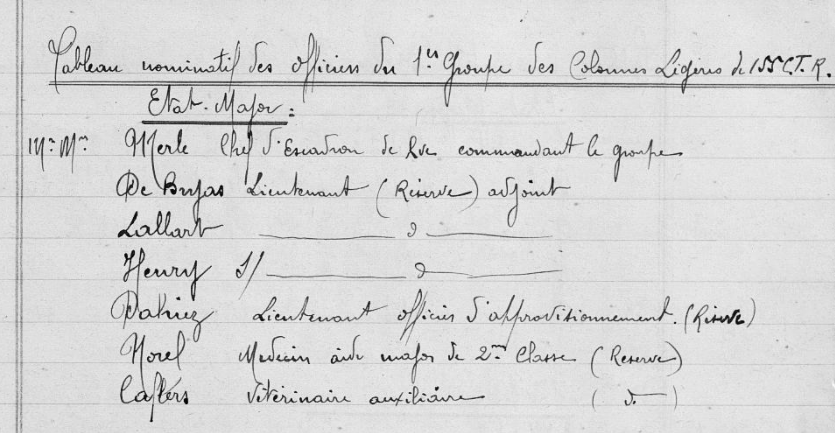 Tableau nominatif des officiers du 1er Groupe des Colonnes Légères de 155 C.T.R.
Etat-Major:
MM. Merle Chef d'Escadron de Rve commandant le groupe
De Bujas Lieutenant (Réserve) adjoint
Lallart — d —
Henry S/ — d —
Lieutenant officier d'approvisionnement. (Réserve)
Morel Medecin aide major de 2me Classe (Reserve)
Vétérinaire auxiliaire ( d° )